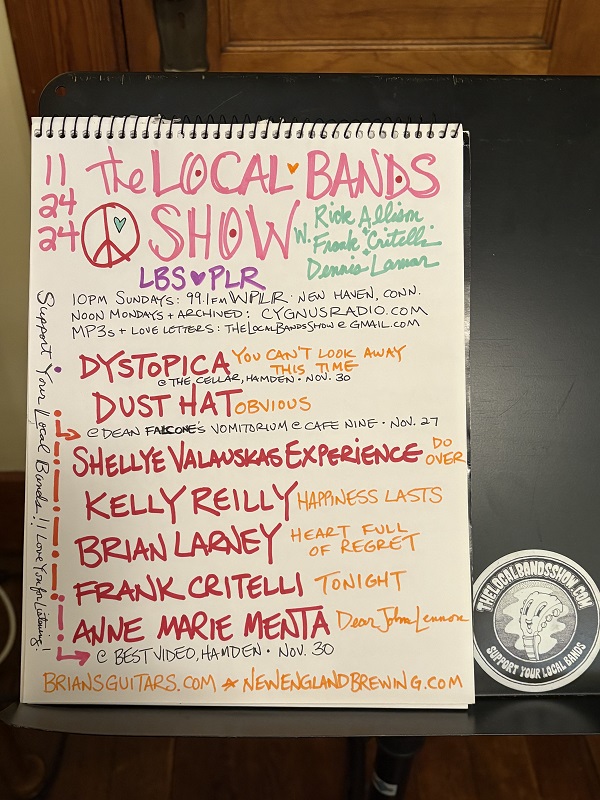 11
24
24
The LOCAL BANDS
SHOW
W. Rick Allison
+ Frank Critelli +
Dennis Lamar
LBS PLR
10PM SUNDAYS: 99.1FM WPLR · NEW HAVEN, CONN.
NOON MONDAYS + ARCHIVED: CYGNUSRADIO.COM
MP3s + LOVE LETTERS: THELOCALBANDSSHOW@GMAIL.COM
DYSTOPICA YOU CAN'T LOOK AWAY
THIS TIME
@ THE CELLAR, HAMDEN · NOV. 30
DUST HAT OBVIOUS
@ DEAN FALCONE'S VOMITORIUM @ CAFE NINE · NOV. 27
SHELLYE VALAUSKAS EXPERIENCE DO
OVER
KELLY REILLY HAPPINESS LASTS
BRIAN LARNEY HEART FULL
OF REGRET
FRANK CRITELLI TONIGHT
ANNE MARIE MENTA Dear John Lennon
@ BEST VIDEO, HAMDEN · NOV. 30
BRIANSGUITARS.COM ☆ NEWENGLANDBREWING.COM
Support Your Local Bands!! Love You for Listening!
THELOCALBANDSSHOW.COM
SUPPORT YOUR LOCAL BANDS